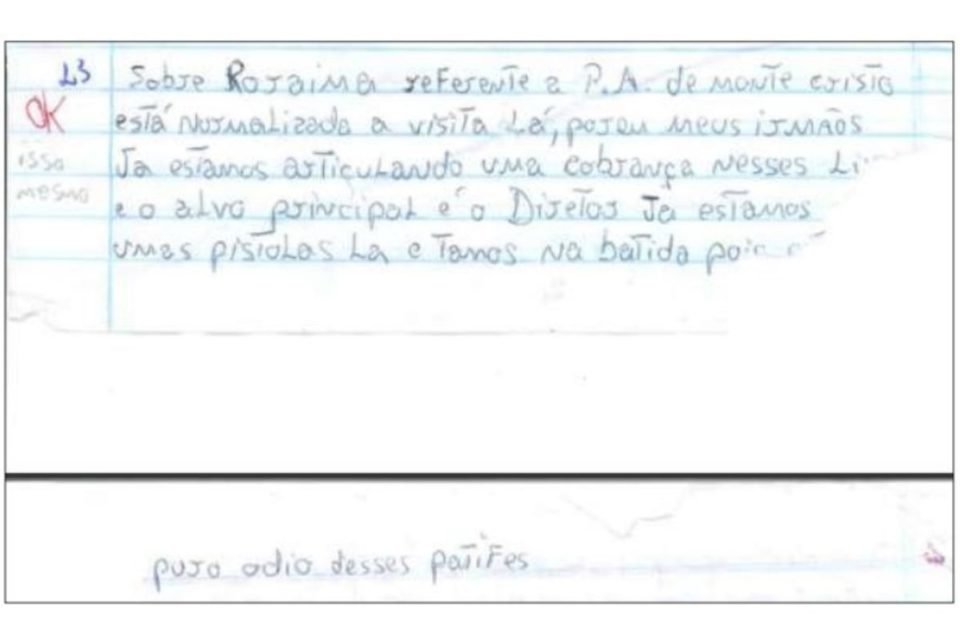 L3 Sobre Roraima referente a P.A. de monte cristo
OK está normalizada a visita Lá, poren meus irmãos
isso Ja estamos articulando uma cobrança nesses
mesmo e o alvo principal e´o Diretor Ja estamos
umas pistolas La e Tamos na batida
puro odio desses patifes